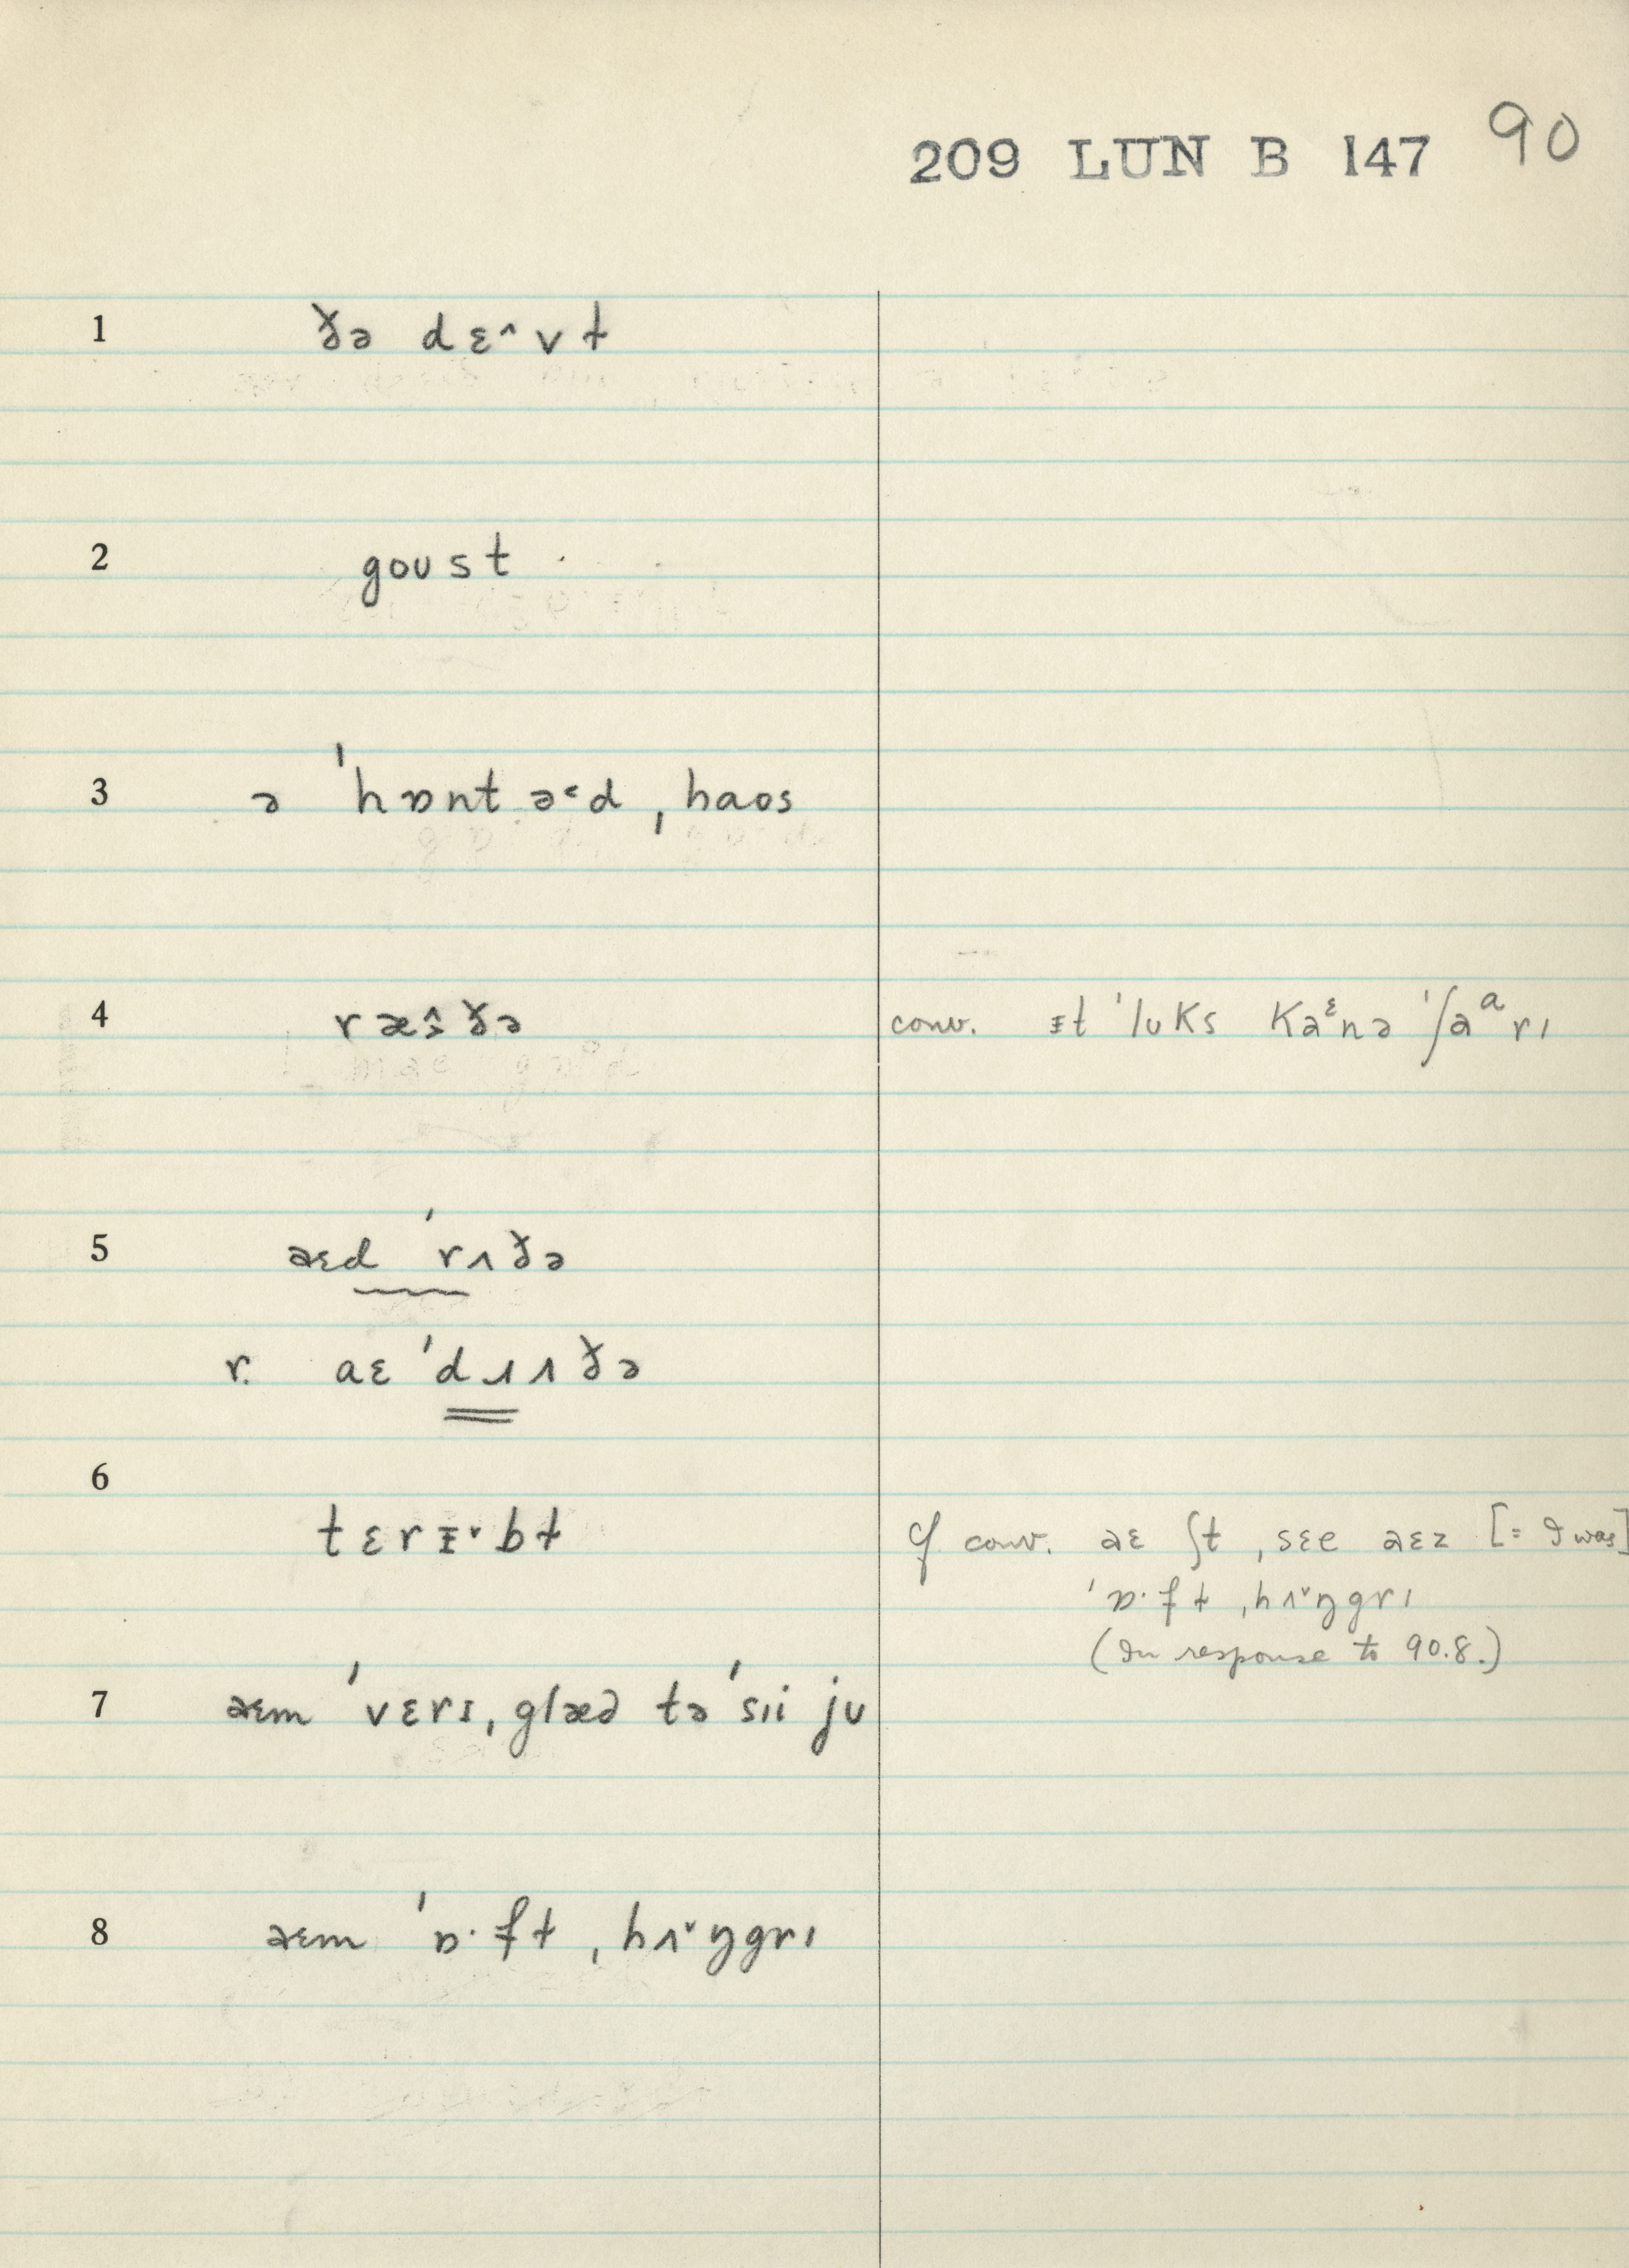 209 LUN B 147 90
1 ð̆ə dɛ^vɫ
2 goust
3 ə ˈhɒntə˂d ˌhaos
4 ræŝðə conv. ᵻt ˈlʊks kaᵋnə ˈʃaᵃrı
5 aɛd ˈrʌðə
r. aɛ ˈdɹʌðə
6
tɛrᵻ˅bɫ cf conv. aɛ ʃt ˌsɛe aɛz [= I was]
ˈɒ·fɫ ˌhʌ˅ŋgrı
(In response to 90.8.)
7 aɛm ˈvɛrɪ ˌglæd tə ˈsıi jʊ
8 aɛm ˈɒ·fɫ ˌhʌ˅ŋgrı